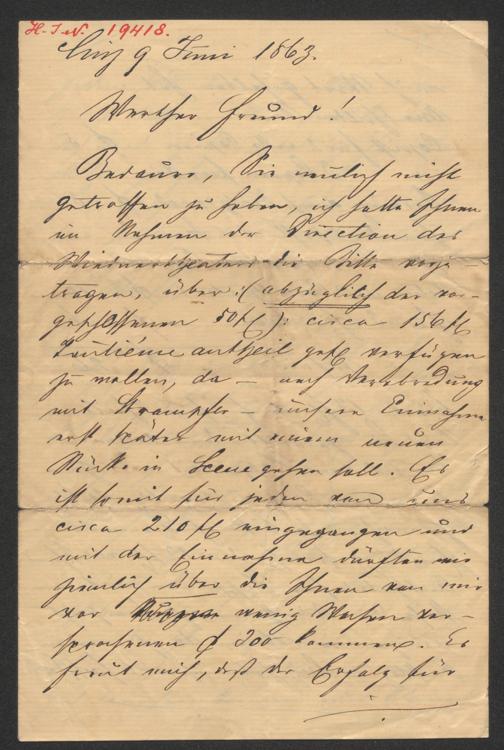 H. I. N. 19418.
9 Juni 1863.
Werther Freund!
Bedaure, Sie neulich nicht
getroffen zu haben, ich hatte Ihnen
im Nahmen der Direction des
Wiednertheaters die Bitte vorzu
tragen, über :( abzüglich der vor-
geschossenen 50 fl ): circa 156 fl
Tantièmeantheil gefl verfügen
zu wollen, da – nach Verabredung
mit Strampfer – unsere Einnahme
erst später mit einem neuen
Stücke in Scene gehen soll. Es
ist somit für jeden von uns
circa 210 fl eingegangen und
mit der Einnahme dürften wir
ziemlich über die Ihnen von mir
vor wenig Wochen ver-
sprochenen f 300 kommen. Es
freut mich, daß der Erfolg für